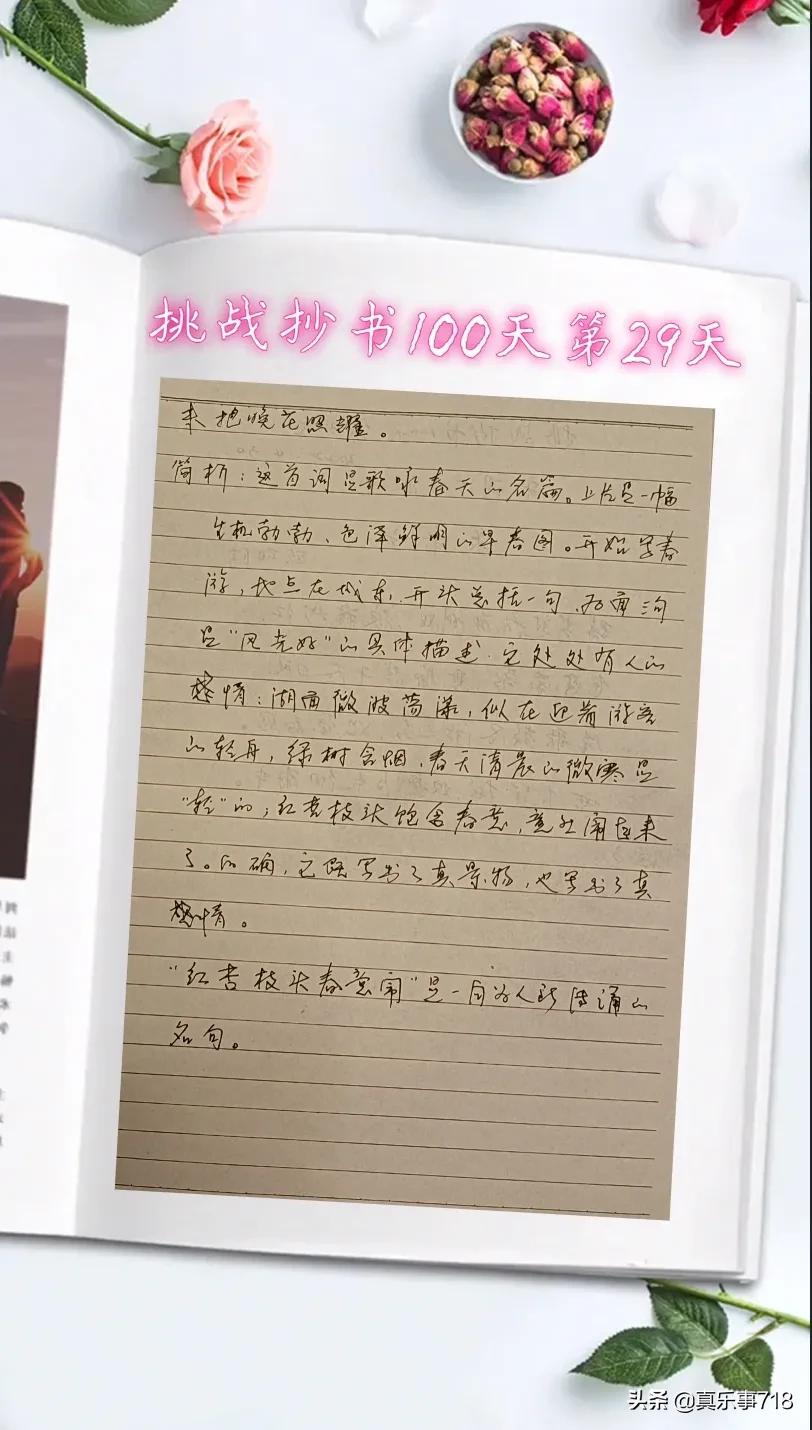 挑战抄书100天第29天
来把晚花照耀。
简析：这首词是歌咏春天的名篇。上片是一幅
生机勃勃、色泽鲜明的早春图。开始写春
游，地点在城东，开头总括一句，后面三句
是“风光好”的具体描述。它处处有人的
感情：湖面微波荡漾，似在迎着游客
的轻舟，绿树含烟，春天清晨的微寒是
“轻”的；红杏枝头饱含春意，意外闹起来
了。的确，它既写出了真景物，也写出了真
感情。
“红杏枝头春意闹”是一句为人所传诵的
名句。
头条 @真乐事718